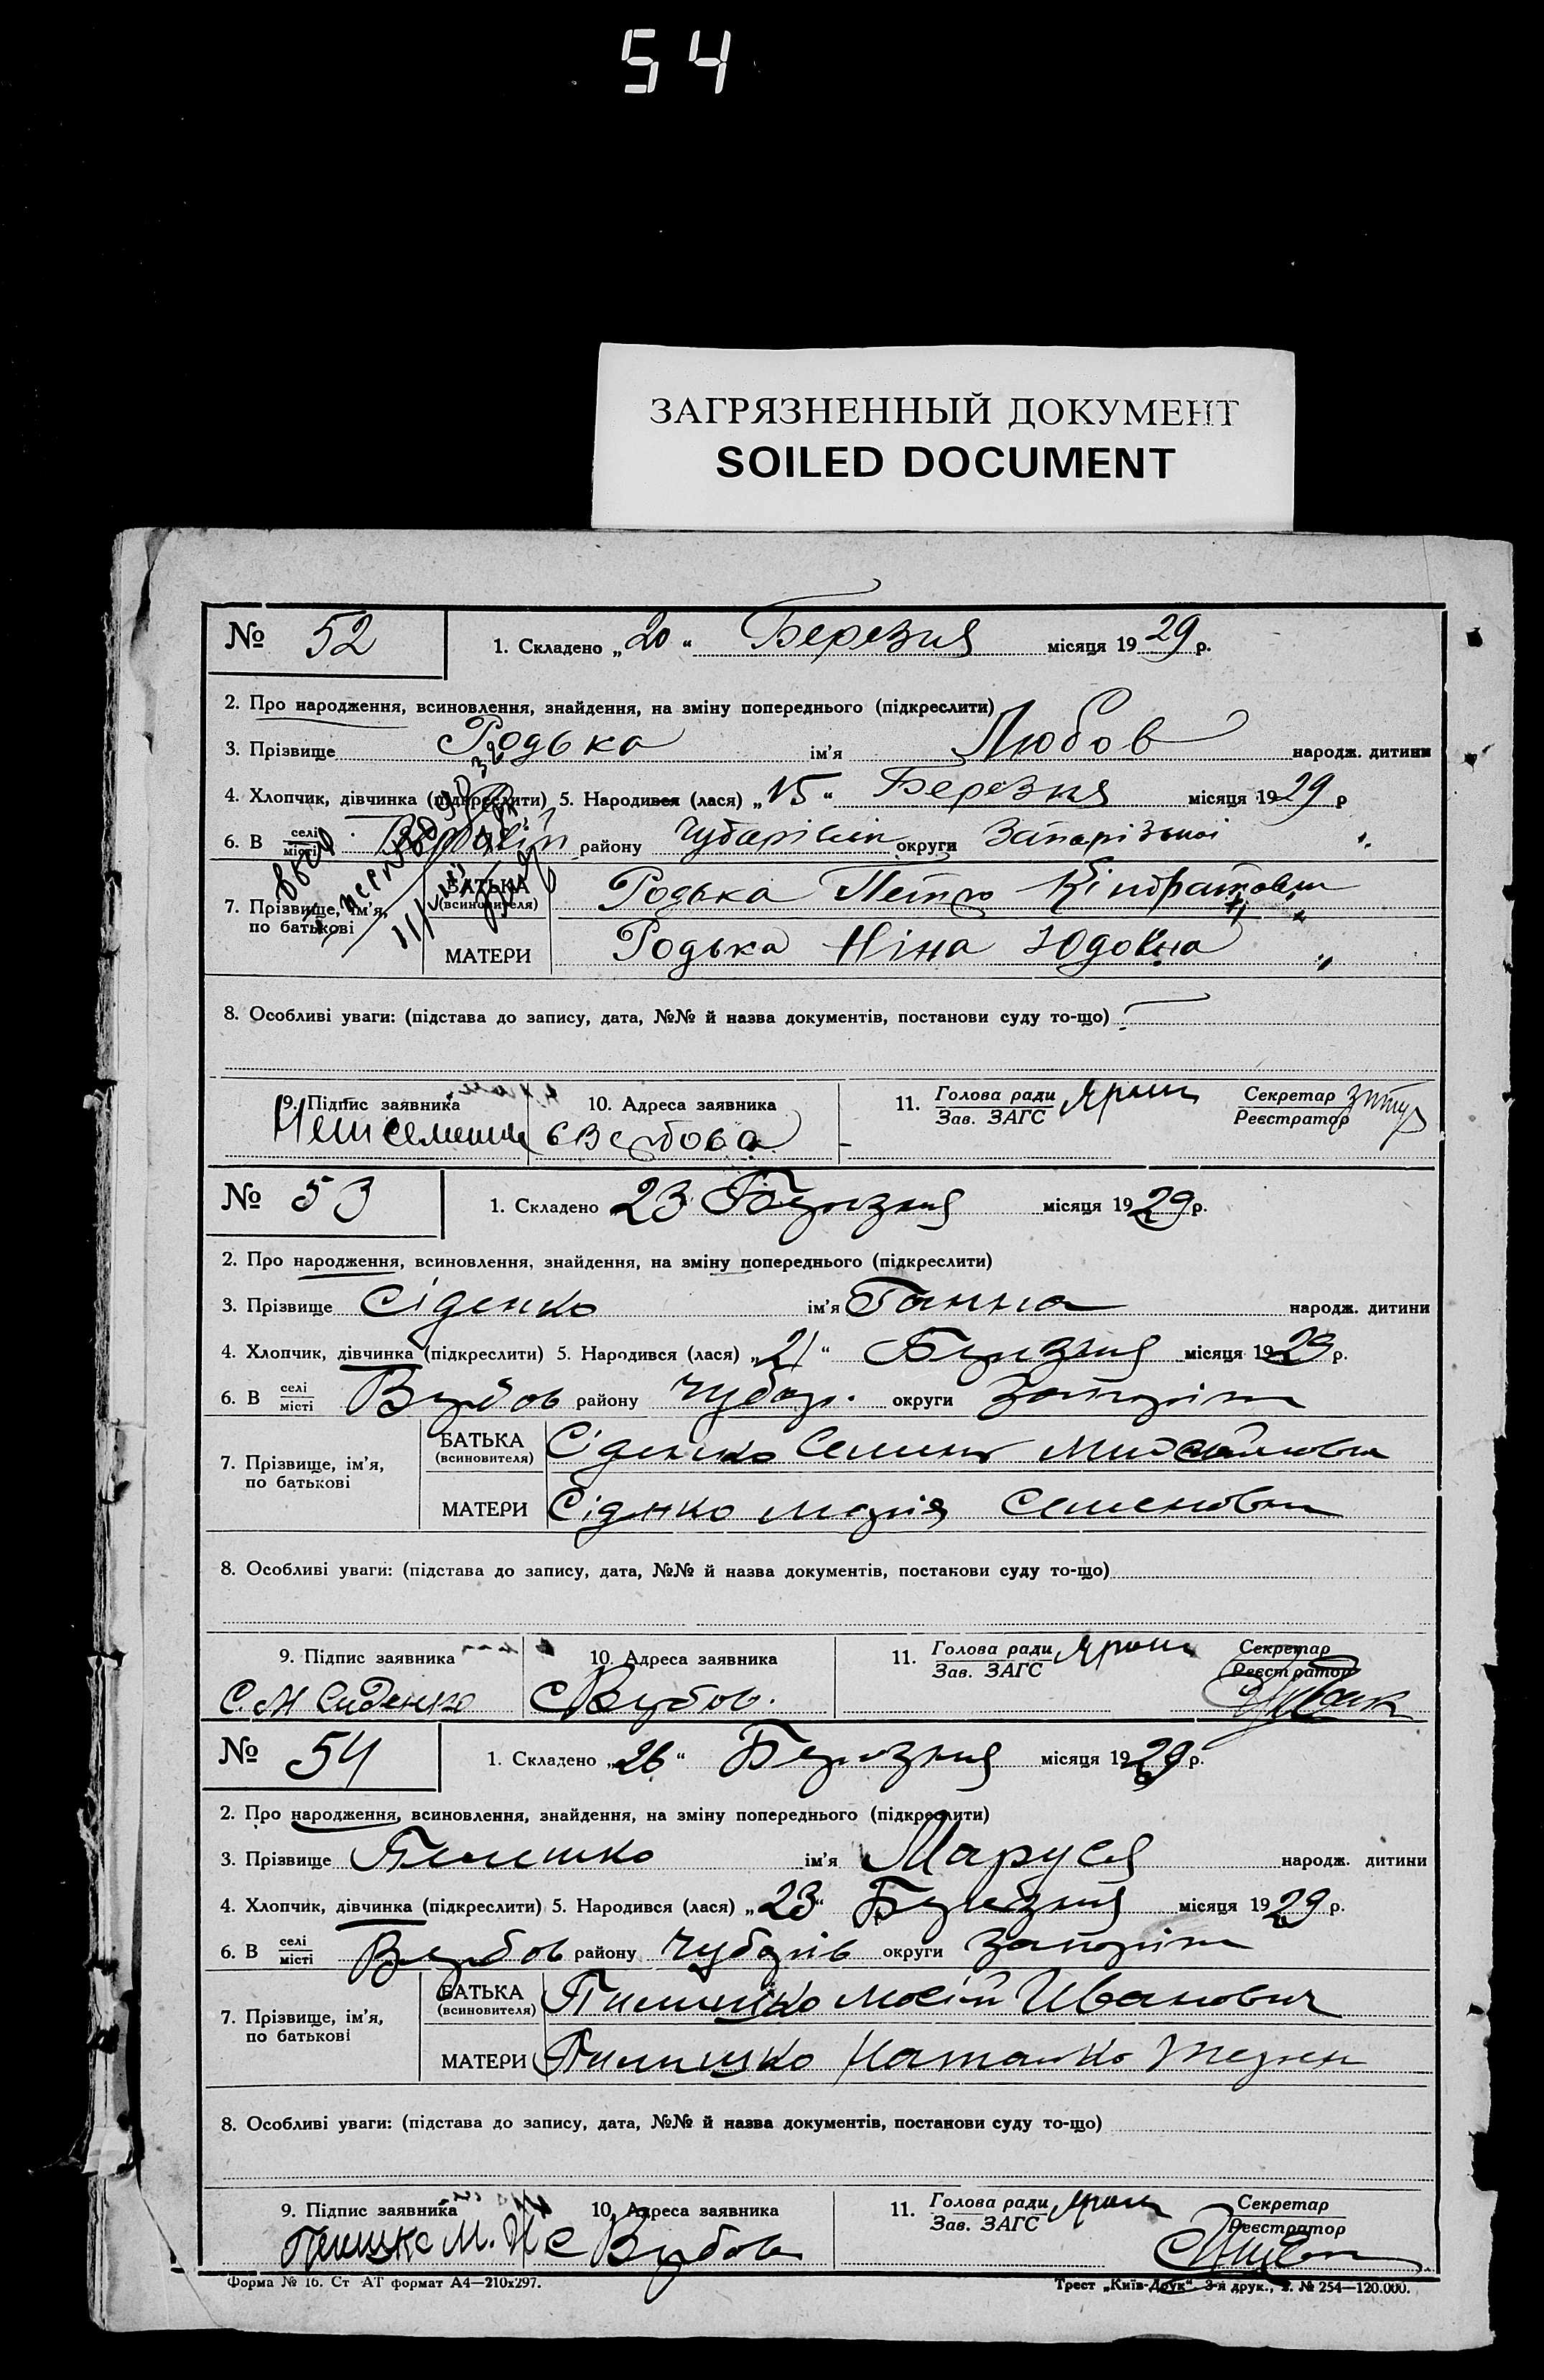 54
ЗАГРЯЗНЕННЫЙ ДОКУМЕНТ
SOILED DOCUMENT
№ 52 1. Складено „20“ Березня місяця 1929 р.
2. Про народження, всиновлення, знайдення, на зміну попереднього (підкреслити)
3. Прізвище Родька ім'я Любов народж. дитини
4. Хлопчик, дівчинка (підкреслити) 5. Народився (лася) „15“ Березня місяця 1929 р
6. В селі місті району округи Запорізької "
7. Прізвище, ім'я, по батькові
БАТЬКА (всиновителя) Родька Петро Кіндратович "
МАТЕРИ Родька Ніна Юдовна "
8. Особливі уваги: (підстава до запису, дата, №№ й назва документів, постанови суду то-що)
9. Підпис заявника 10. Адреса заявника 11. Голова ради Зав. ЗАГС Секретар Реєстратор
Неписьменна с Вербова
№ 53 1. Складено 23 Березня місяця 1929 р.
2. Про народження, всиновлення, знайдення, на зміну попереднього (підкреслити)
3. Прізвище Сіденко ім'я Ганна народж. дитини
4. Хлопчик, дівчинка (підкреслити) 5. Народився (лася) „21“ Березня місяця 1929 р.
6. В селі місті Вербов району Чубар. округи Запоріж
7. Прізвище, ім'я, по батькові
БАТЬКА (всиновителя) Сіденко Семен Михайлович
МАТЕРИ Сіденко Марія Семеновна
8. Особливі уваги: (підстава до запису, дата, №№ й назва документів, постанови суду то-що)
9. Підпис заявника 10. Адреса заявника 11. Голова ради Зав. ЗАГС Секретар Реєстратор
С. М Сиденко С Вербов.
№ 54 1. Складено „26“ Березня місяця 1929 р.
2. Про народження, всиновлення, знайдення, на зміну попереднього (підкреслити)
3. Прізвище ім'я Маруся народж. дитини
4. Хлопчик, дівчинка (підкреслити) 5. Народився (лася) „23“ Березня місяця 1929 р.
6. В селі місті Вербов району Чубарів округи Запоріж
7. Прізвище, ім'я, по батькові
БАТЬКА (всиновителя) Мосій Иванович
МАТЕРИ Наталка
8. Особливі уваги: (підстава до запису, дата, №№ й назва документів, постанови суду то-що)
9. Підпис заявника 10. Адреса заявника 11. Голова ради Зав. ЗАГС Секретар Реєстратор
М. И с Вербов
Форма № 16. Ст АТ формат А4—210х297. Трест „Київ-Друк“ 3-я друк., З. № 254—120.000.